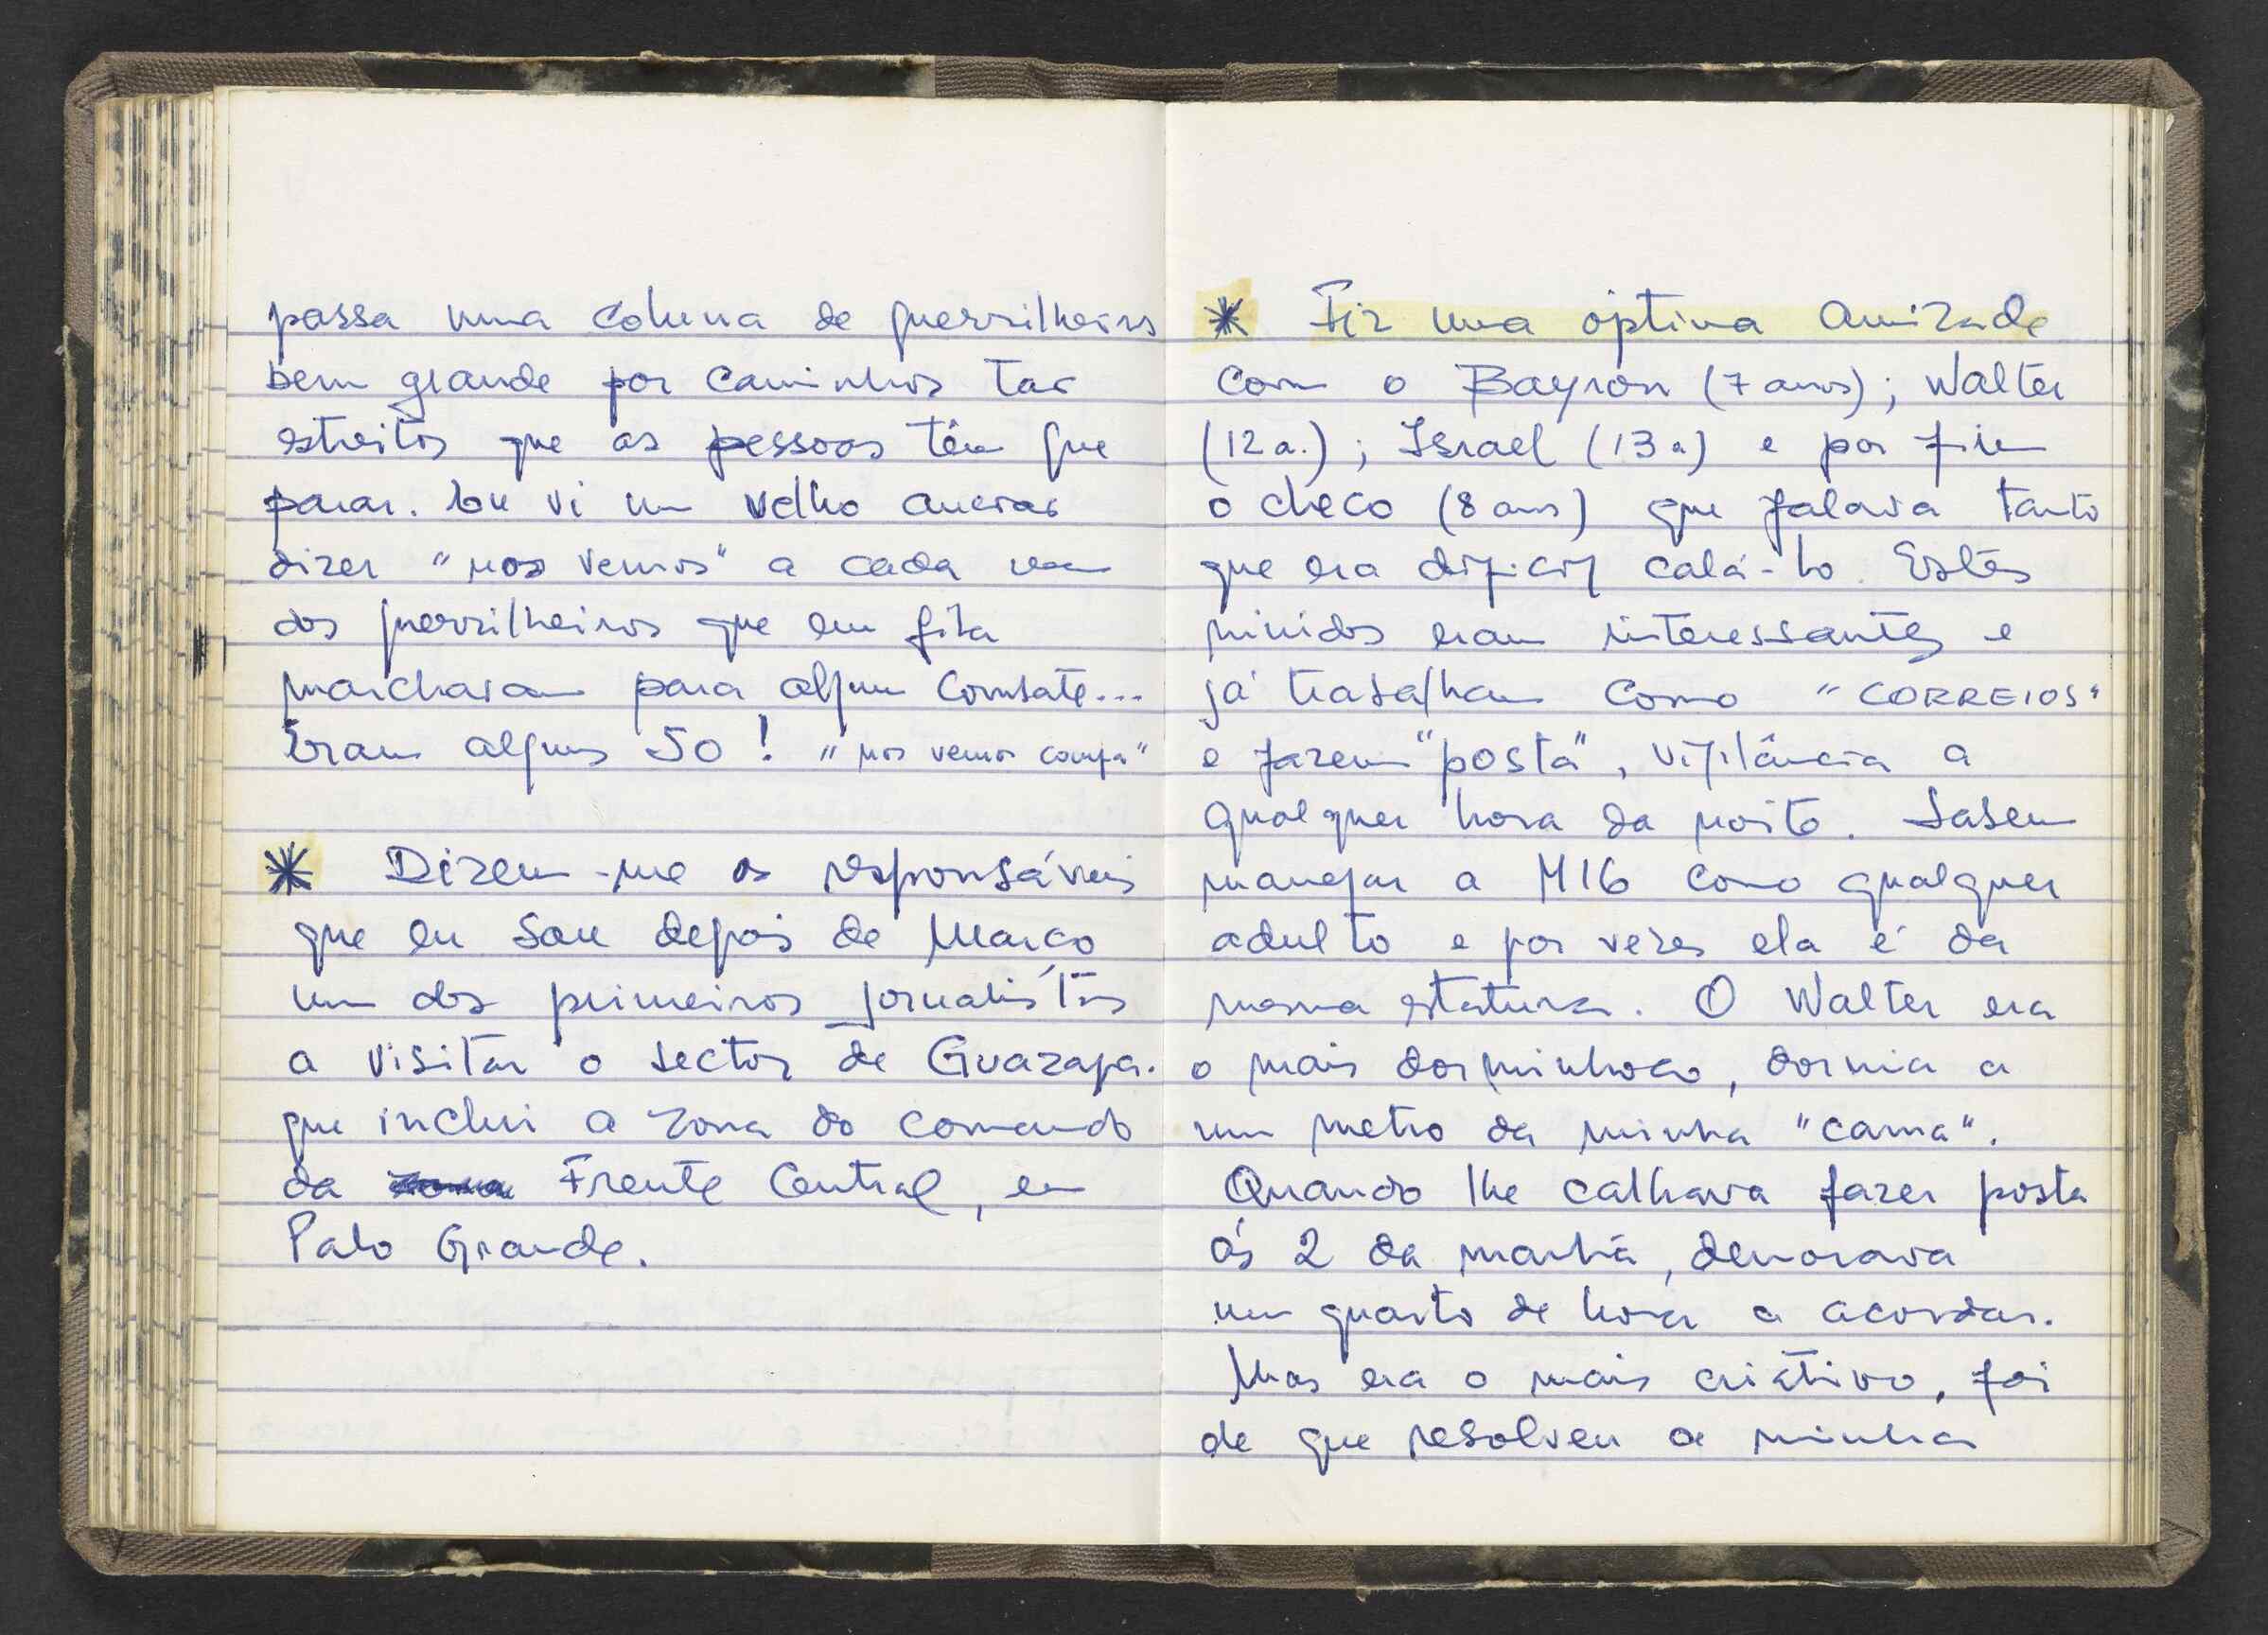 passa uma coluna de guerrilheiros
bem grande por caminhos tao
estreitos que as pessoas têm que
parar. Eu vi um velho anciao
dizer "nos vemos" a cada um
dos guerrilheiros que em fila
marchavam para algum combate...
Eram alguns 50! "nos vemos compa"
* Dizem-me os responsáveis
que eu sou depois de Março
um dos primeiros jornalistas
a visitar o sector de Guazapa.
que inclui a zona do comando
da zona Frente Central, em
Palo Grande.
* Fiz uma óptima amizade
com o Bayron (7 anos); Walter
(12 a.); Israel (13 a) e por fim
o checo (8 anos) que falava tanto
que era dificil calá-lo. Estes
miúdos eram interessantes e
já trabalham como "CORREIOS"
e fazem "posta", vigilância a
qualquer hora da noite. Sabem
manejar a M16 como qualquer
adulto e por vezes ela é da
mesma estatura. O Walter era
o mais dorminhoco, dormia a
um metro da minha "cama".
Quando lhe calhava fazer posta
ás 2 da manhã, demorava
um quarto de hora a acordar.
Mas era o mais criativo, foi
ele que resolveu a minha